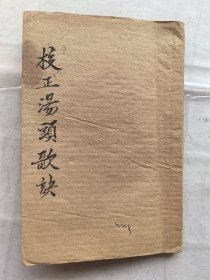 校正湯頭歌訣